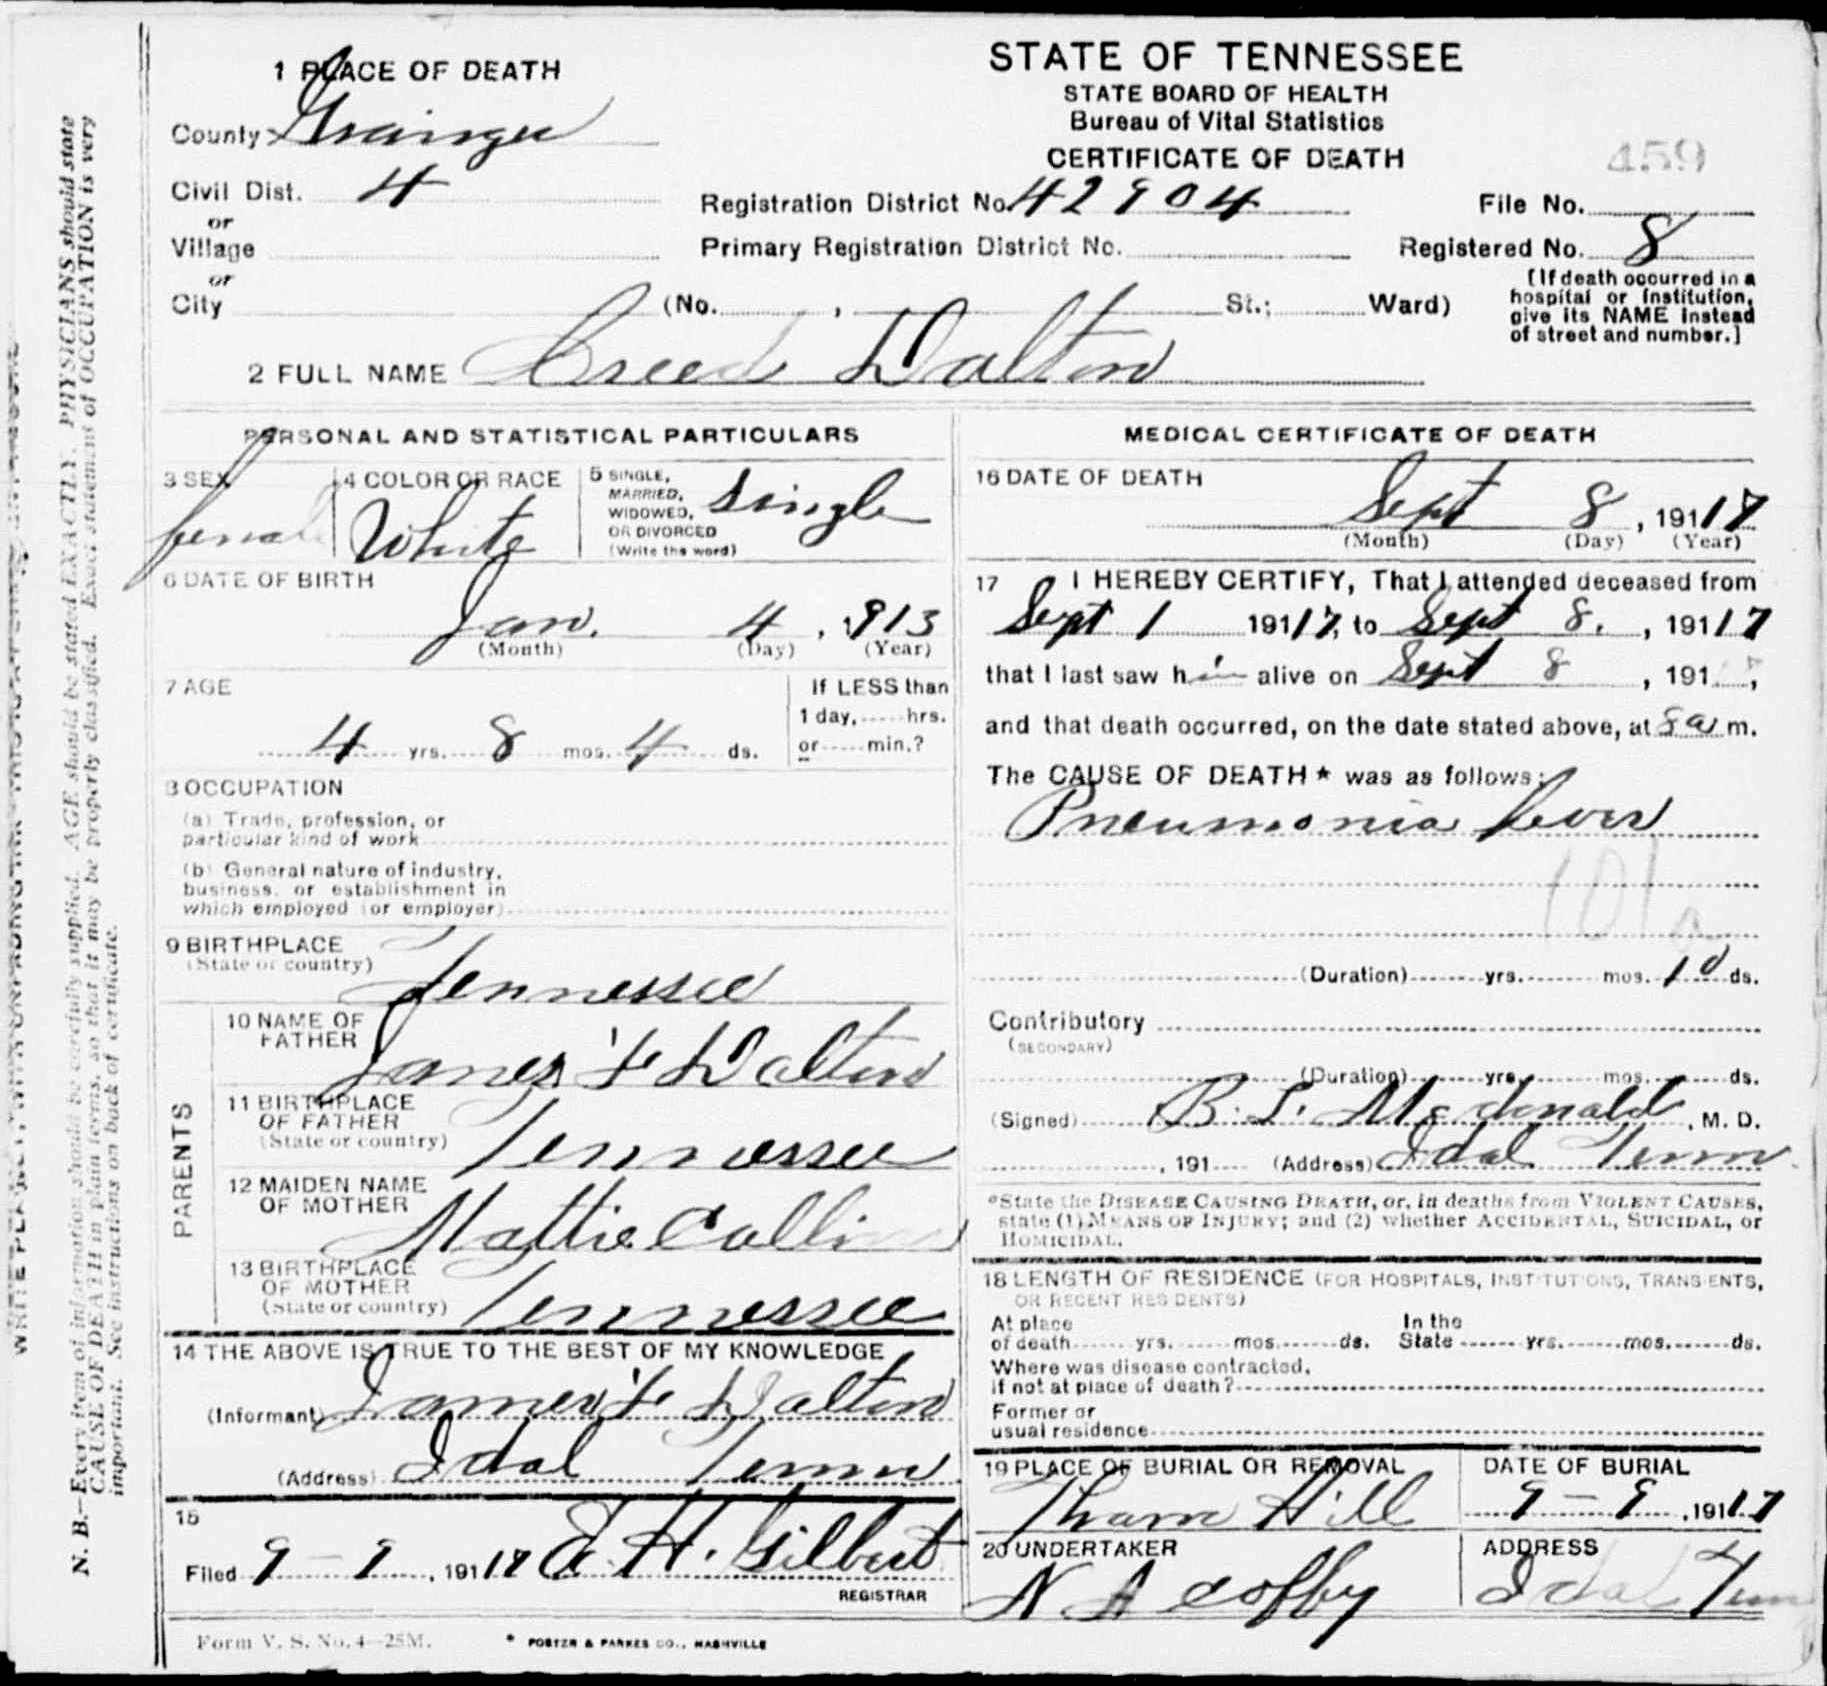 1 PLACE OF DEATH
County Grainger
Civil Dist. 4
or
Village
or
City (No. , St.; Ward)
STATE OF TENNESSEE
STATE BOARD OF HEALTH
Bureau of Vital Statistics
CERTIFICATE OF DEATH
459
Registration District No. 42904
File No.
Primary Registration District No.
Registered No. 8
[If death occurred in a
hospital or institution,
give its NAME instead
of street and number.]
2 FULL NAME Creed Dalton
PERSONAL AND STATISTICAL PARTICULARS
3 SEX
female
4 COLOR OR RACE
White
5 SINGLE,
MARRIED,
WIDOWED,
OR DIVORCED
(Write the word)
Single
6 DATE OF BIRTH
Jan. 4, 1913
(Month) (Day) (Year)
7 AGE
4 yrs. 8 mos. 4 ds.
If LESS than
1 day, hrs.
or min.?
8 OCCUPATION
(a) Trade, profession, or
particular kind of work
(b) General nature of industry,
business, or establishment in
which employed (or employer)
9 BIRTHPLACE
(State or country)
Tennessee
PARENTS
10 NAME OF
FATHER
James F Dalton
11 BIRTHPLACE
OF FATHER
(State or country)
Tennessee
12 MAIDEN NAME
OF MOTHER
Mattie Collins
13 BIRTHPLACE
OF MOTHER
(State or country)
Tennessee
14 THE ABOVE IS TRUE TO THE BEST OF MY KNOWLEDGE
(Informant) James F Dalton
(Address) Idal Tenn
15
Filed 9-9, 19117 E. H. Gilbert
REGISTRAR
MEDICAL CERTIFICATE OF DEATH
16 DATE OF DEATH
Sept 8, 19117
(Month) (Day) (Year)
17 I HEREBY CERTIFY, That I attended deceased from
Sept 1 19117, to Sept 8., 19117
that I last saw him alive on Sept 8, 191 7,
and that death occurred, on the date stated above, at 8 a m.
The CAUSE OF DEATH* was as follows:
Pneumonia fever
101a
(Duration) yrs. mos. 10 ds.
Contributory
(SECONDARY)
(Duration) yrs. mos. ds.
(Signed) B. L. McDonald, M. D.
, 191 (Address) Idal Tenn
*State the DISEASE CAUSING DEATH, or, in deaths from VIOLENT CAUSES,
state (1) MEANS OF INJURY; and (2) whether ACCIDENTAL, SUICIDAL, or
HOMICIDAL.
18 LENGTH OF RESIDENCE (FOR HOSPITALS, INSTITUTIONS, TRANSIENTS,
OR RECENT RESIDENTS)
At place
of death yrs. mos. ds.
In the
State yrs. mos. ds.
Where was disease contracted,
if not at place of death?
Former or
usual residence
19 PLACE OF BURIAL OR REMOVAL
Tharm Hill
DATE OF BURIAL
9-9, 19117
20 UNDERTAKER
N A Coffey
ADDRESS
Idal Tenn
Form V. S. No. 4—25M.
* FOSTER & PARKES CO., NASHVILLE
N. B.—Every item of information should be carefully supplied. AGE should be stated EXACTLY. PHYSICIANS should state
CAUSE OF DEATH in plain terms, so that it may be properly classified. Exact statement of OCCUPATION is very
important. See instructions on back of certificate.